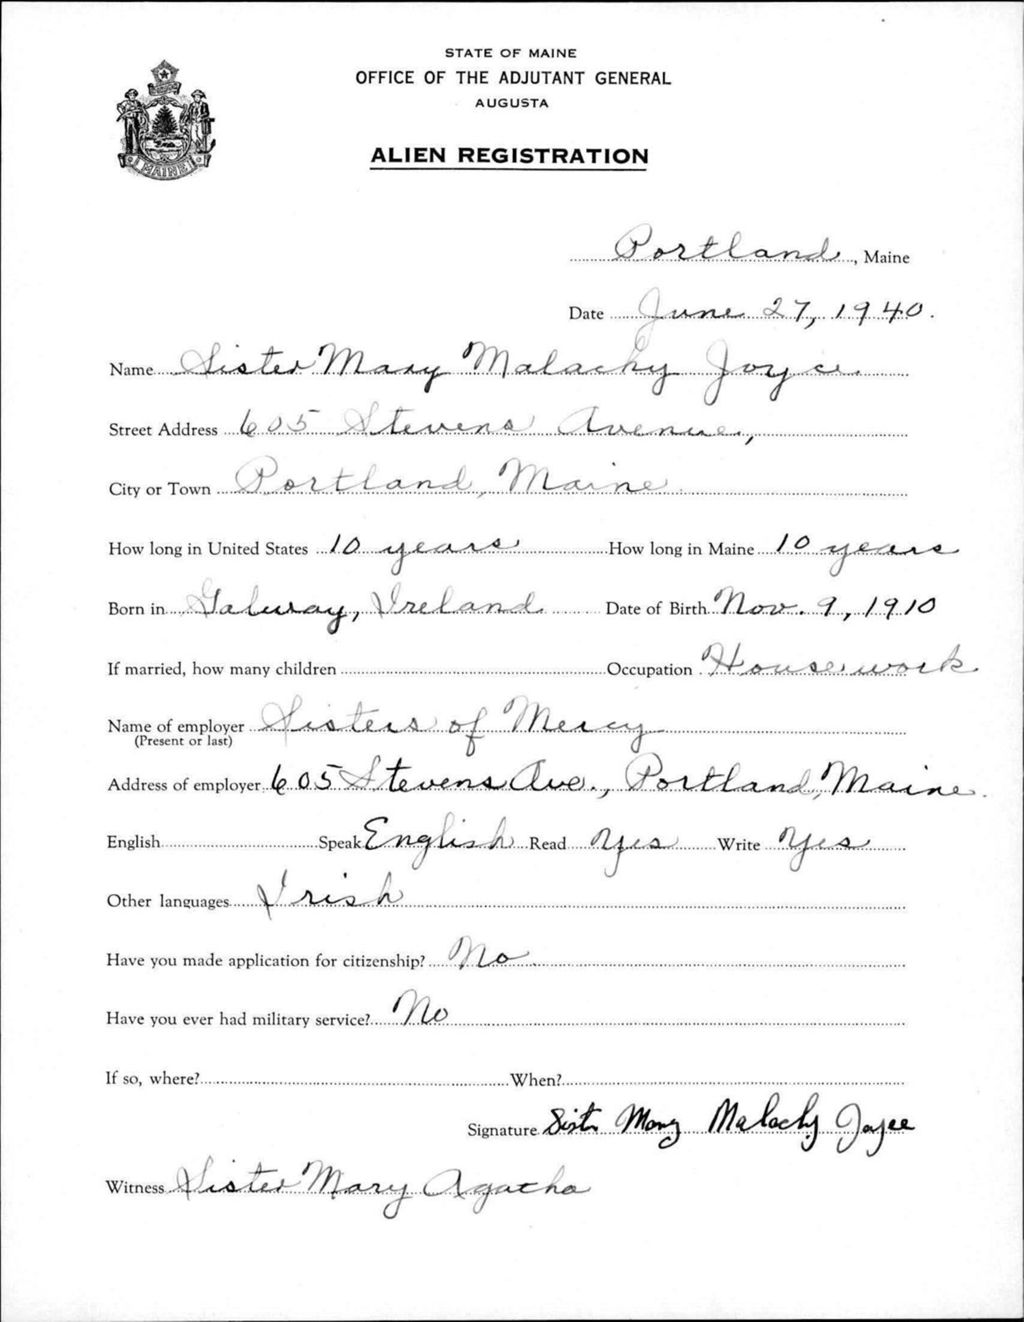 STATE OF MAINE
OFFICE OF THE ADJUTANT GENERAL
AUGUSTA
ALIEN REGISTRATION
MAINE
Portland, Maine
Date June 27, 1940.
Name Sister Mary Malachy Joyce
Street Address 605 Stevens Avenue,
City or Town Portland, Maine
How long in United States 10 years How long in Maine 10 years
Born in Galway, Ireland Date of Birth Nov. 9, 1910
If married, how many children Occupation Housework
Name of employer Sisters of Mercy
(Present or last)
Address of employer 605 Stevens Ave., Portland, Maine.
English Speak English Read Yes Write Yes
Other languages Irish
Have you made application for citizenship? No
Have you ever had military service? No
If so, where? When?
Signature Sister Mary Malachy Joyce
Witness Sister Mary Agatha